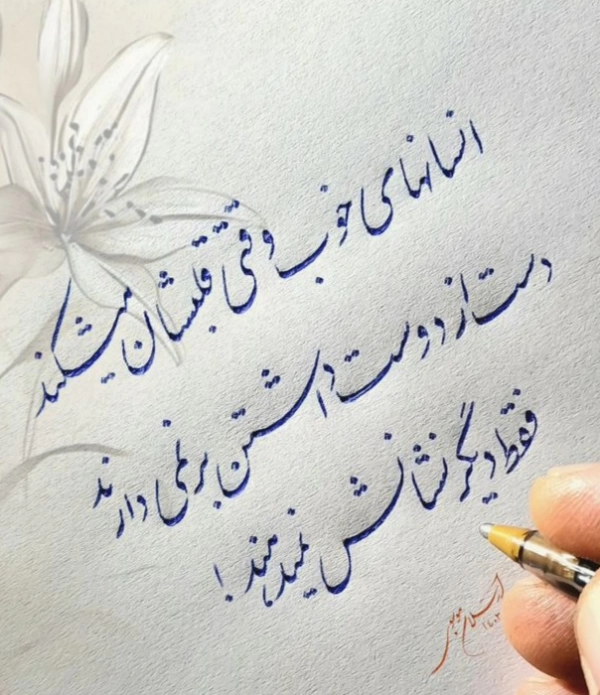 انسانهای خوب وقتی قلبشان میشکند
دست از دوست داشتن برنمی دارند
فقط دیگر نشانش نمیدهند!
۱۴۰۲